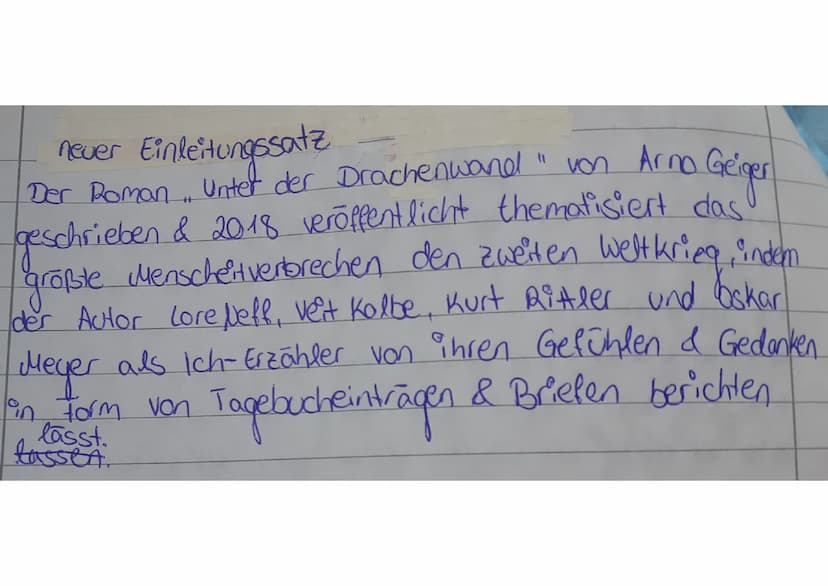 neuer Einleitungssatz
Der Roman „Unter der Drachenwand" von Arno Geiger
geschrieben & 2018 veröffentlicht thematisiert das
größte Menscheitverbrechen den zweiten Weltkrieg, indem
der Actor Lore Neff, Veit Kolbe, Kurt Ritler und Oskar
Meyer als Ich-Erzähler von ihren Gefühlen & Gedanken
in form von Tagebucheinträgen & Briefen berichten
lässt.
lassen.